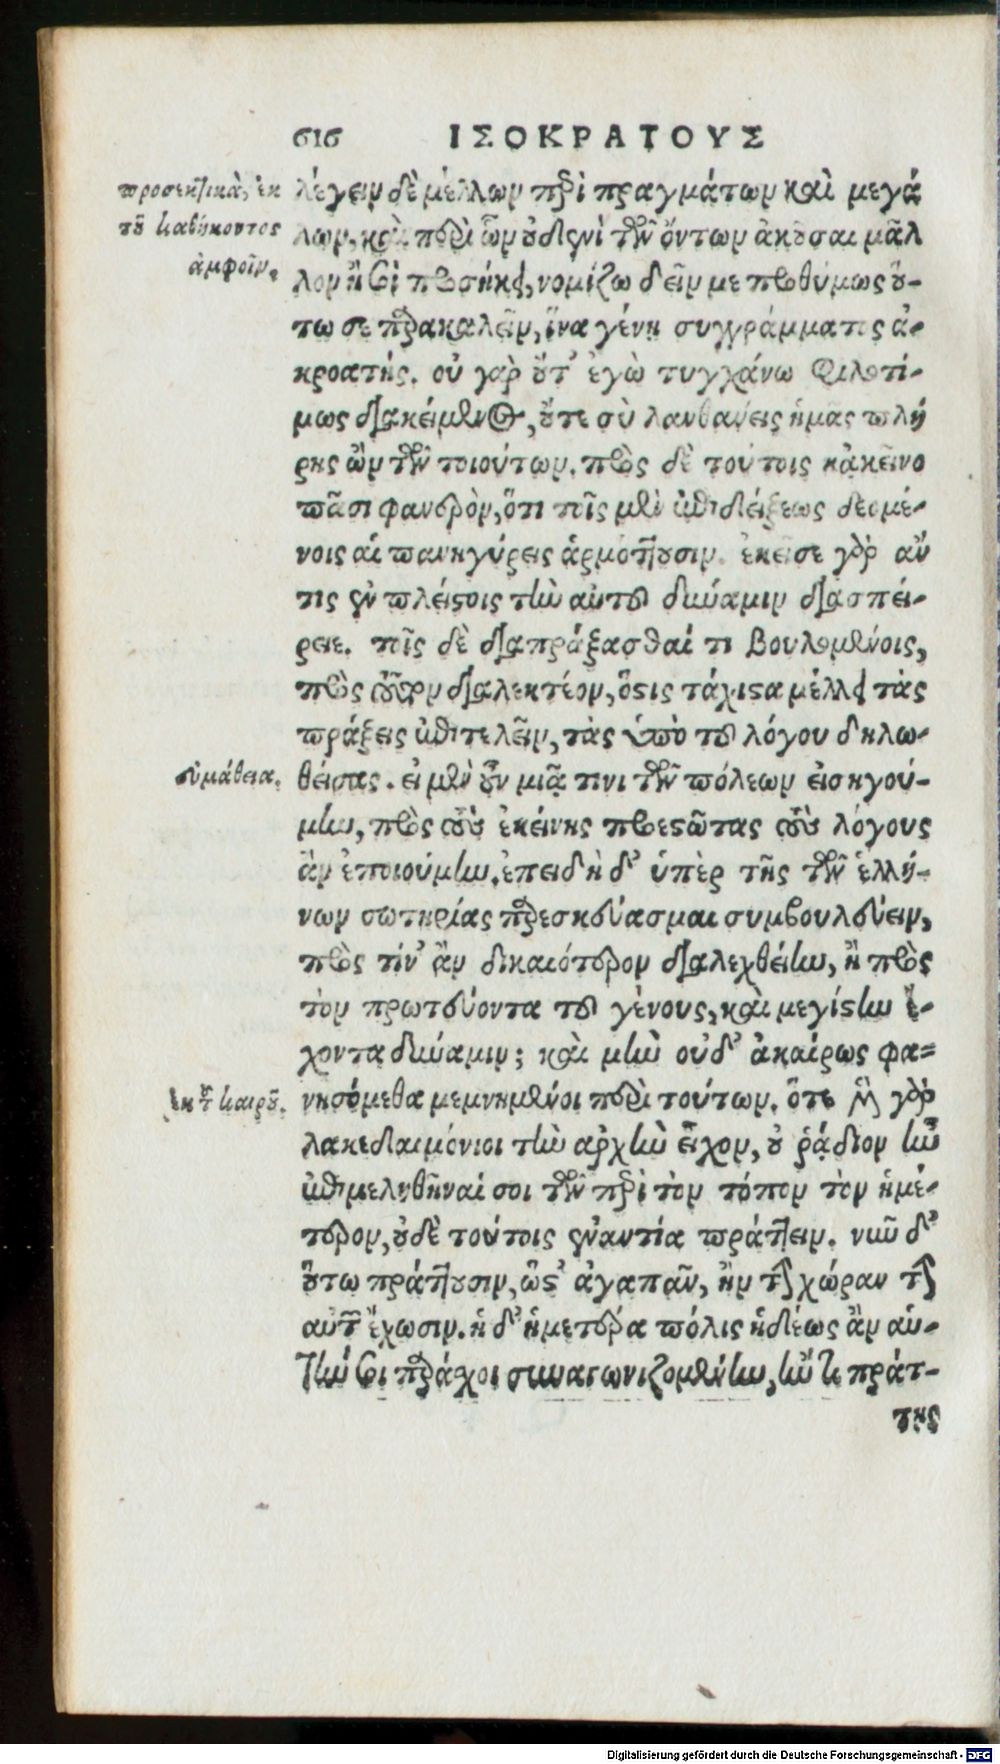 616 ΙΣΟΚΡΑΤΟΥΣ
προσεκτικὰ, ἐκ
τοῦ καθήκοντος
ἀμφοῖν.
λέγειν δὲ μέλλων περὶ πραγμάτων καὶ μεγά
λων, καὶ περὶ ὧν οὐδενὶ τῶν ὄντων ἀκοῦσαι μᾶλ
λον ἢ σοὶ προσήκει, νομίζω δεῖν με προθύμως οὕ-
τω σε παρακαλεῖν, ἵνα γένῃ συγγράμματος ἀ-
κροατής. οὐ γὰρ οὔτ' ἐγὼ τυγχάνω φιλοτί-
μως διακείμενος, οὔτε σὺ λανθάνεις ἡμᾶς πλή
ρης ὢν τῶν τοιούτων. πρὸς δὲ τούτοις κἀκεῖνο
πᾶσι φανερὸν, ὅτι τοῖς μὲν ἐπιδείξεως δεομέ-
νοις αἱ πανηγύρεις ἁρμόττουσιν. ἐκεῖσε γὰρ ἄν
τις ἐν πλείστοις τὴν αὐτοῦ δύναμιν διασπεί-
ρειε. τοῖς δὲ διαπράξασθαί τι βουλομένοις,
πρὸς τοῦτον διαλεκτέον, ὅστις τάχιστα μέλλει τὰς
πράξεις ἐπιτελεῖν, τὰς ὑπὸ τοῦ λόγου δηλω-
εὐμάθεια.
θείσας. εἰ μὲν οὖν μιᾷ τινι τῶν πόλεων εἰσηγού-
μην, πρὸς τοὺς ἐκείνης προεστῶτας τοὺς λόγους
ἂν ἐποιούμην. ἐπειδὴ δ' ὑπὲρ τῆς τῶν ἑλλή-
νων σωτηρίας παρεσκεύασμαι συμβουλεύειν,
πρὸς τίν' ἂν δικαιότερον διαλεχθείην, ἢ πρὸς
τὸν πρωτεύοντα τοῦ γένους, καὶ μεγίστην ἔ-
χοντα δύναμιν; καὶ μὴν οὐδ' ἀκαίρως φα-
ἐκ τοῦ καιροῦ.
νησόμεθα μεμνημένοι περὶ τούτων. ὅτε μὲν γὰρ
λακεδαιμόνιοι τὴν ἀρχὴν εἶχον, οὐ ῥᾴδιον ἦν
ἐπιμεληθῆναί σοι τῶν περὶ τὸν τόπον τὸν ἡμέ-
τερον, οὐδὲ τούτοις ἐναντία πράττειν. νῦν δ'
οὕτω πράττουσιν, ὥστ' ἀγαπᾶν, ἢν τὴν χώραν τὴν
αὑτῶν ἔχωσιν. ἡ δ' ἡμετέρα πόλις ἡδέως ἂν αὑ-
τήν σοι παράσχοι συναγωνιζομένην, ἤν τι πράτ-
της
Digitalisierung gefördert durch die Deutsche Forschungsgemeinschaft - DFG